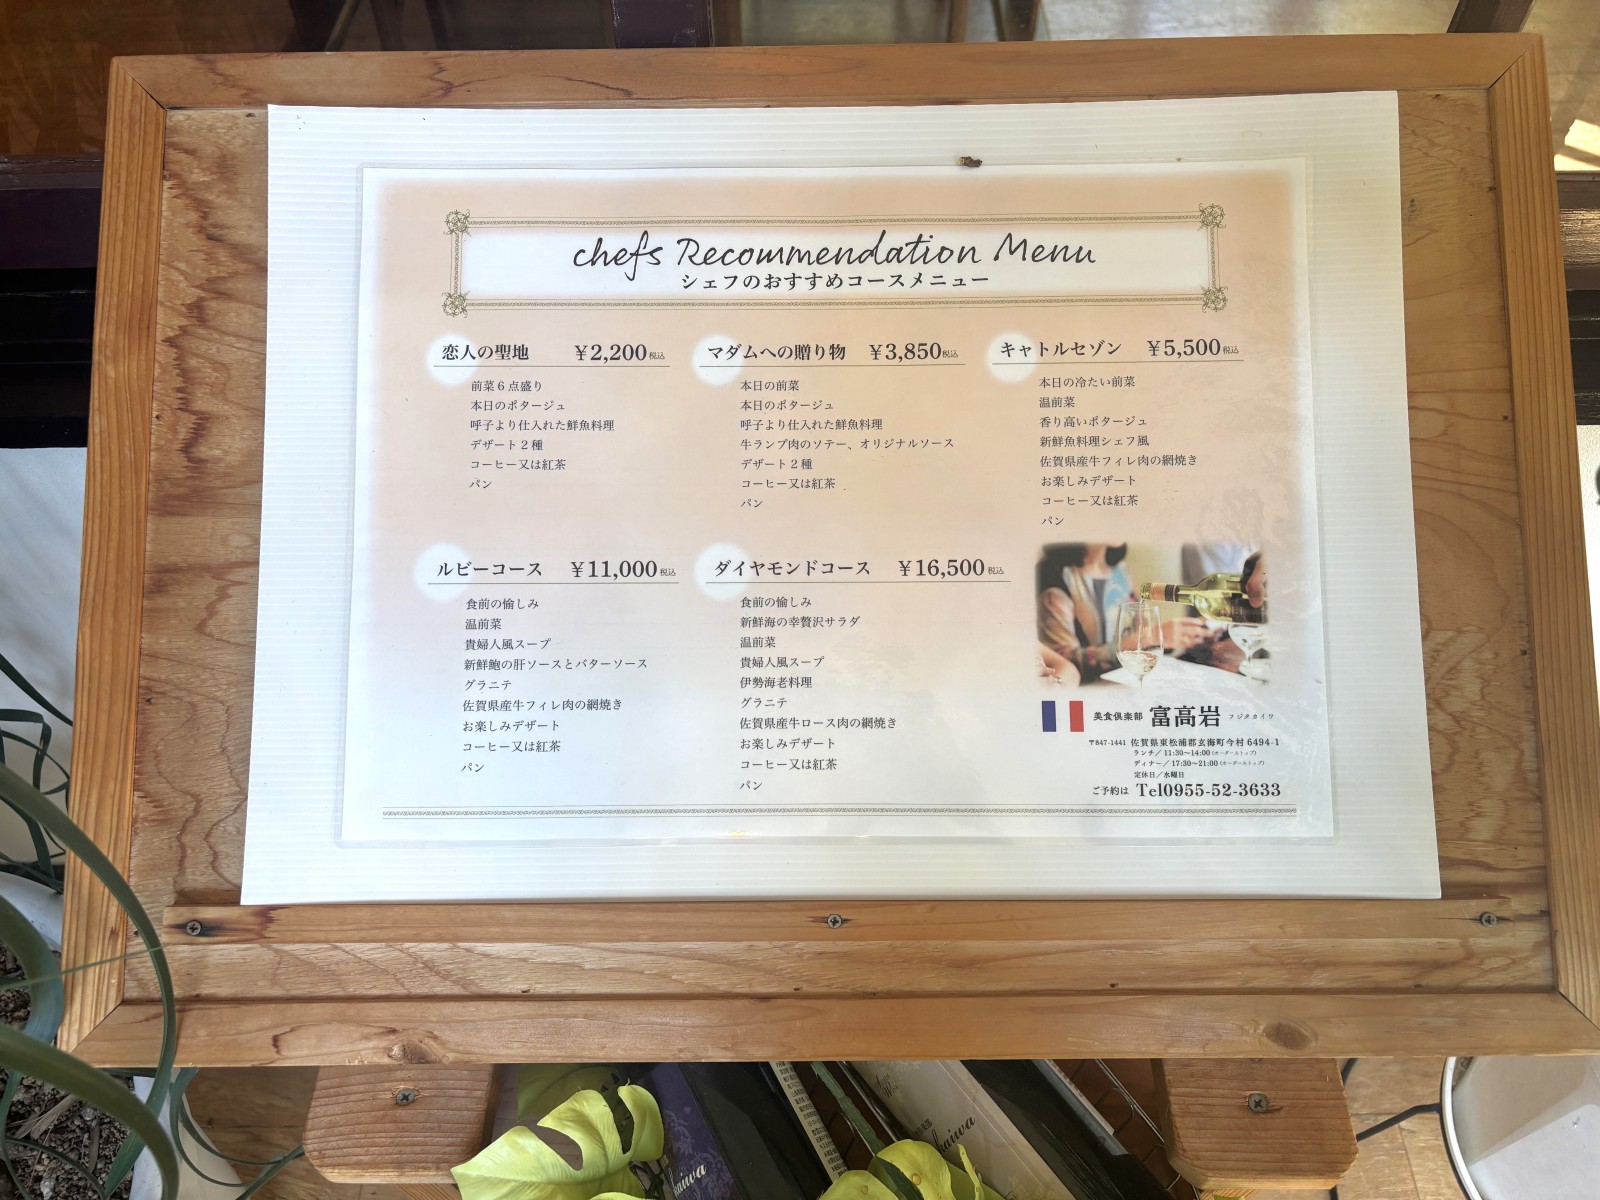 chefs Recommendation Menu
シェフのおすすめコースメニュー
恋人の聖地 ¥2,200税込
前菜6点盛り
本日のポタージュ
呼子より仕入れた鮮魚料理
デザート2種
コーヒー又は紅茶
パン
マダムへの贈り物 ¥3,850税込
本日の前菜
本日のポタージュ
呼子より仕入れた鮮魚料理
牛ランプ肉のソテー、オリジナルソース
デザート2種
コーヒー又は紅茶
パン
キャトルセゾン ¥5,500税込
本日の冷たい前菜
温前菜
香り高いポタージュ
新鮮魚料理シェフ風
佐賀県産牛フィレ肉の網焼き
お楽しみデザート
コーヒー又は紅茶
パン
ルビーコース ¥11,000税込
食前の愉しみ
温前菜
貴婦人風スープ
新鮮鮑の肝ソースとバターソース
グラニテ
佐賀県産牛フィレ肉の網焼き
お楽しみデザート
コーヒー又は紅茶
パン
ダイヤモンドコース ¥16,500税込
食前の愉しみ
新鮮海の幸贅沢サラダ
温前菜
貴婦人風スープ
伊勢海老料理
グラニテ
佐賀県産牛ロース肉の網焼き
お楽しみデザート
コーヒー又は紅茶
パン
美食倶楽部 富高岩 フジタカイワ
〒847-1441 佐賀県東松浦郡玄海町今村6494-1
ランチ/11:30~14:00(オーダーストップ)
ディナー/17:30~21:00(オーダーストップ)
定休日/水曜日
ご予約は Tel0955-52-3633